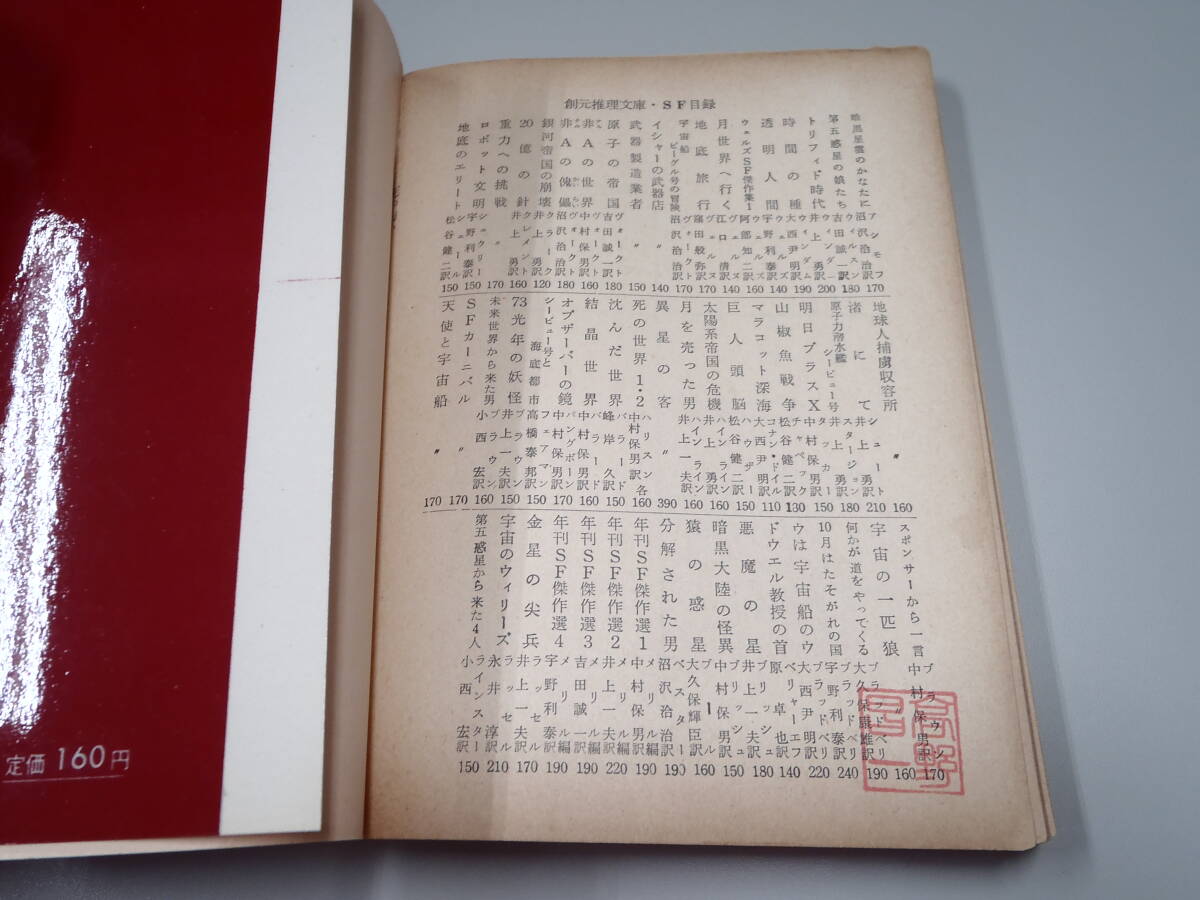 定価 160円
創元推理文庫・SF目録
暗黒星雲のかなたに アシモフ 沼沢洽治訳 170
第五惑星の娘たち ウィルスン 吉田誠一訳 180
トリフィド時代 ウィンダム 井上勇訳 200
時間の種 ウィンダム 大西尹明訳 190
透明人間 ウェルズ 宇野利泰訳 140
ウェルズSF傑作集1 ウェルズ 阿部知二訳 160
月世界へ行く ヴェルヌ 江口清訳 140
地底旅行 ヴェルヌ 窪田般弥訳 170
宇宙船ビーグル号の冒険 ヴォークト 沼沢洽治訳 170
イシャーの武器店 〃 140
武器製造業者 〃 150
原子の帝国 ヴォークト 吉田誠一訳 180
非Aの世界 ヴォークト 中村保男訳 160
非Aの傀儡 ヴォークト 沼沢洽治訳 180
銀河帝国の崩壊 クラーク 井上勇訳 120
20億の針 クレメント 井上勇訳 160
重力への挑戦 〃 170
ロボット文明 シェクリー 宇野利泰訳 150
地底のエリート シェール 松谷健二訳 150
地球人捕虜収容所 〃 160
渚にて シュート 井上勇訳 210
原子力潜水艦シービュー号 スタージョン 井上勇訳 180
明日プラスX タッカー 中村保男訳 150
山椒魚戦争 チャペック 松谷健二訳 130
マラコット深海 コナン・ドイル 大西尹明訳 110
巨人頭脳 ハウザー 松谷健二訳 150
太陽系帝国の危機 ハインライン 井上勇訳 160
月を売った男 ハインライン 井上一夫訳 160
異星の客 〃 390
死の世界1・2 ハリスン 中村保男訳 各160
沈んだ世界 バラード 峰岸久訳 150
結晶世界 バラード 中村保男訳 160
オブザーバーの鏡 パングボーン 中村保男訳 170
シービュー号と海底都市 フェアマン 高橋泰邦訳 150
73光年の妖怪 ブラウン 井上一夫訳 150
未来世界から来た男 ブラウン 小西宏訳 160
SFカーニバル 〃 170
天使と宇宙船 〃 170
スポンサーから一言 ブラウン 中村保男訳 170
宇宙の一匹狼 〃 160
何かが道をやってくる ブラッドベリ 大久保康雄訳 190
10月はたそがれの国 ブラッドベリ 宇野利泰訳 240
ウは宇宙船のウ ブラッドベリ 大西尹明訳 220
ドウエル教授の首 ベリャーエフ 原卓也訳 140
悪魔の星 ブリッシュ 井上一夫訳 180
暗黒大陸の怪異 ブリッシュ 中村保男訳 150
猿の惑星 ブール 大久保輝臣訳 160
分解された男 ベスター 沼沢洽治訳 190
年刊SF傑作選1 メリル編 中村保男訳 190
年刊SF傑作選2 メリル編 井上一夫訳 220
年刊SF傑作選3 メリル編 吉田誠一訳 190
年刊SF傑作選4 メリル編 宇野利泰訳 190
金星の尖兵 ラッセル 井上一夫訳 170
宇宙のウィリーズ ラッセル 永井淳訳 210
第五惑星から来た4人 ラインスター 小西宏訳 150